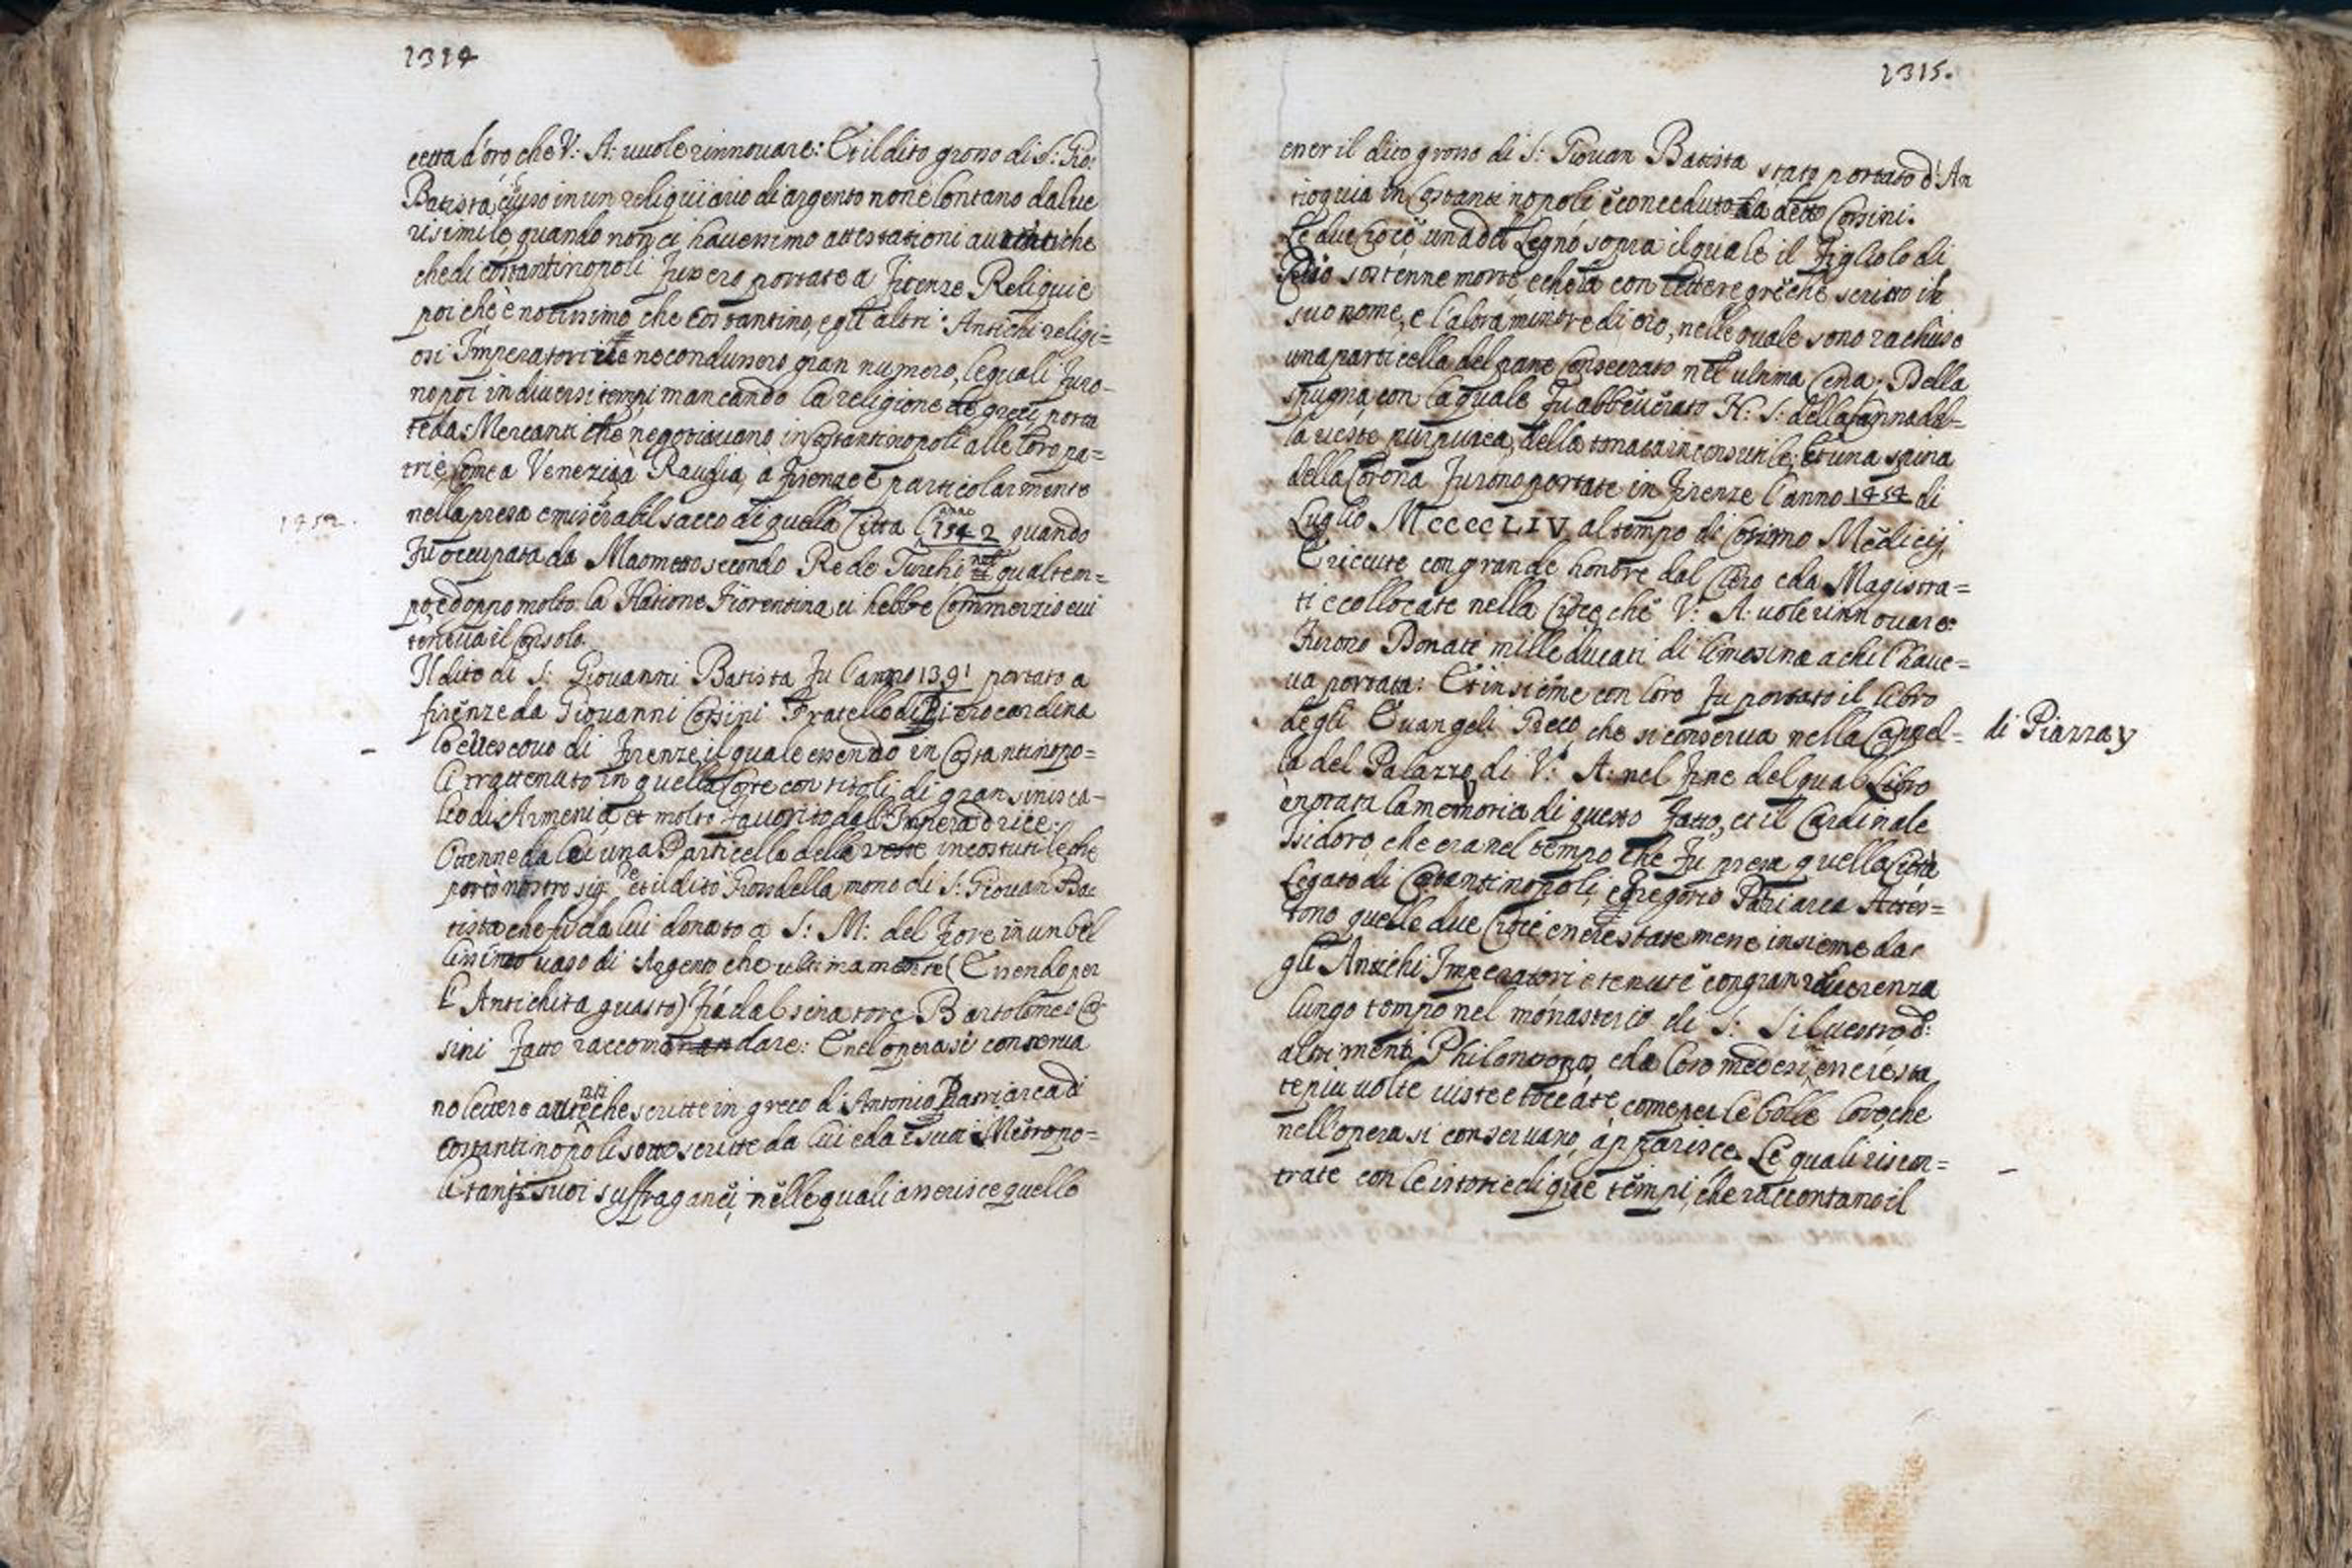 1314
cetta d'oro che V: A: vuole rinnovare: Et il dito grosso di S: Gio:
Batista chiuso in un reliquiario di argento non è lontano dal ve
risimile quando non ci havessimo attestationi autentiche
che di costantinopoli fussero portate a firenze Reliquie
poi che è notissimo che Costantino, e gli altri Antichi religi=
osi Imperatori ne condussero gran numero, le quali furo
no poi in diversi tempi mancando la religione de greci, porta
te da Mercanti che negotiavano in Costantinopoli alle loro pa=
trie Come a Venezia à Raugia, à firenze e particolarmente
nella presa e miserabil sacco di quella Citta l'anno 1542 quando
1452.
fu occupata da Maometto secondo Re de Turchi nel qual tem=
po, e doppo molto la Natione Fiorentina vi hebbe Commerzio e vi
teneva il Consolo.
Il dito di S: Giovanni Batista fu l'anno 1391 portato a
firenze da Giovanni Corsini Fratello di Piero cardina
le e Vescovo di firenze, il quale essendo in Costantinopo=
li trattenuto in quella Corte con titoli di gran sinisca=
lco di Armenia, et molto favorito dall'Imperadrice.
Ottenne da lei una Particella della veste inconsutile che
portò nostro sig.re et il dito Grosso della mano di S: Giovan Bat
tista che fu da lui donato a S: M: del fiore in un bel
lissimo vaso di Argento che ultimamente (Essendo per
l'Antichita guasto) fù dal senatore Bartolomeo Cor
sini fatto raccomandare: E nel opera si conserva
no lettere autentiche scritte in greco di Antonio Patriarca di
Costantinopoli sottoscritte da lui e da i suoi Metropo=
litani suoi suffraganei, nelle quali asserisce quello
1315.
esser il dito grosso di S: Giovan Batista stato portato d'An
tioquia in Costantinopoli e conceduto da detto Corsini.
Le due Croci una del Legno sopra il quale il figliolo di
Dio sostenne morte, e che ha con lettere greche scritto il
suo nome, e l'altra minore di oro, nelle quale sono rachiuse
una particella del pane Consecrato nel ultima Cena. Della
spugna con la quale fu abbeverato N: S: della Canna del=
la veste purpurea, della tonaca inconsutile, et una spina
della Corona furono portate in firenze l'anno 1454 di
Luglio MCCCCLIV al tempo di Cosimo Medicij,
E ricevute con grande honore dal Clero e da Magistra=
ti e collocate nella Croce che V: A: vole rinnovare:
furono Donati mille ducati di limosina a chi l'have=
va portata: Et insieme con loro fu portato il libro
degli Evangeli Greco, che si conserva nella Cappel=
di Piazza
la del Palazzo di V: A: nel fine del qual Libro
è notata la memoria di questo fatto, et il Cardinale
Isidoro, che era nel tempo che fu presa quella Città
Legato di Costantinopoli, e Gregorio Patriarca Attes=
tono quelle due Croci essere state messe insieme da
gli Antichi Imperatori e tenute con gran reverenza
lungo tempo nel monasterio di S: Silvestro d:
altrimenti Philantropos, e da loro medesimi essere sta
te più volte viste e toccate come per le bolle loro, che
nell'opera si conservano, apparisce. Le quali riscon=
trate con le istorie di que tempi, che raccontano il